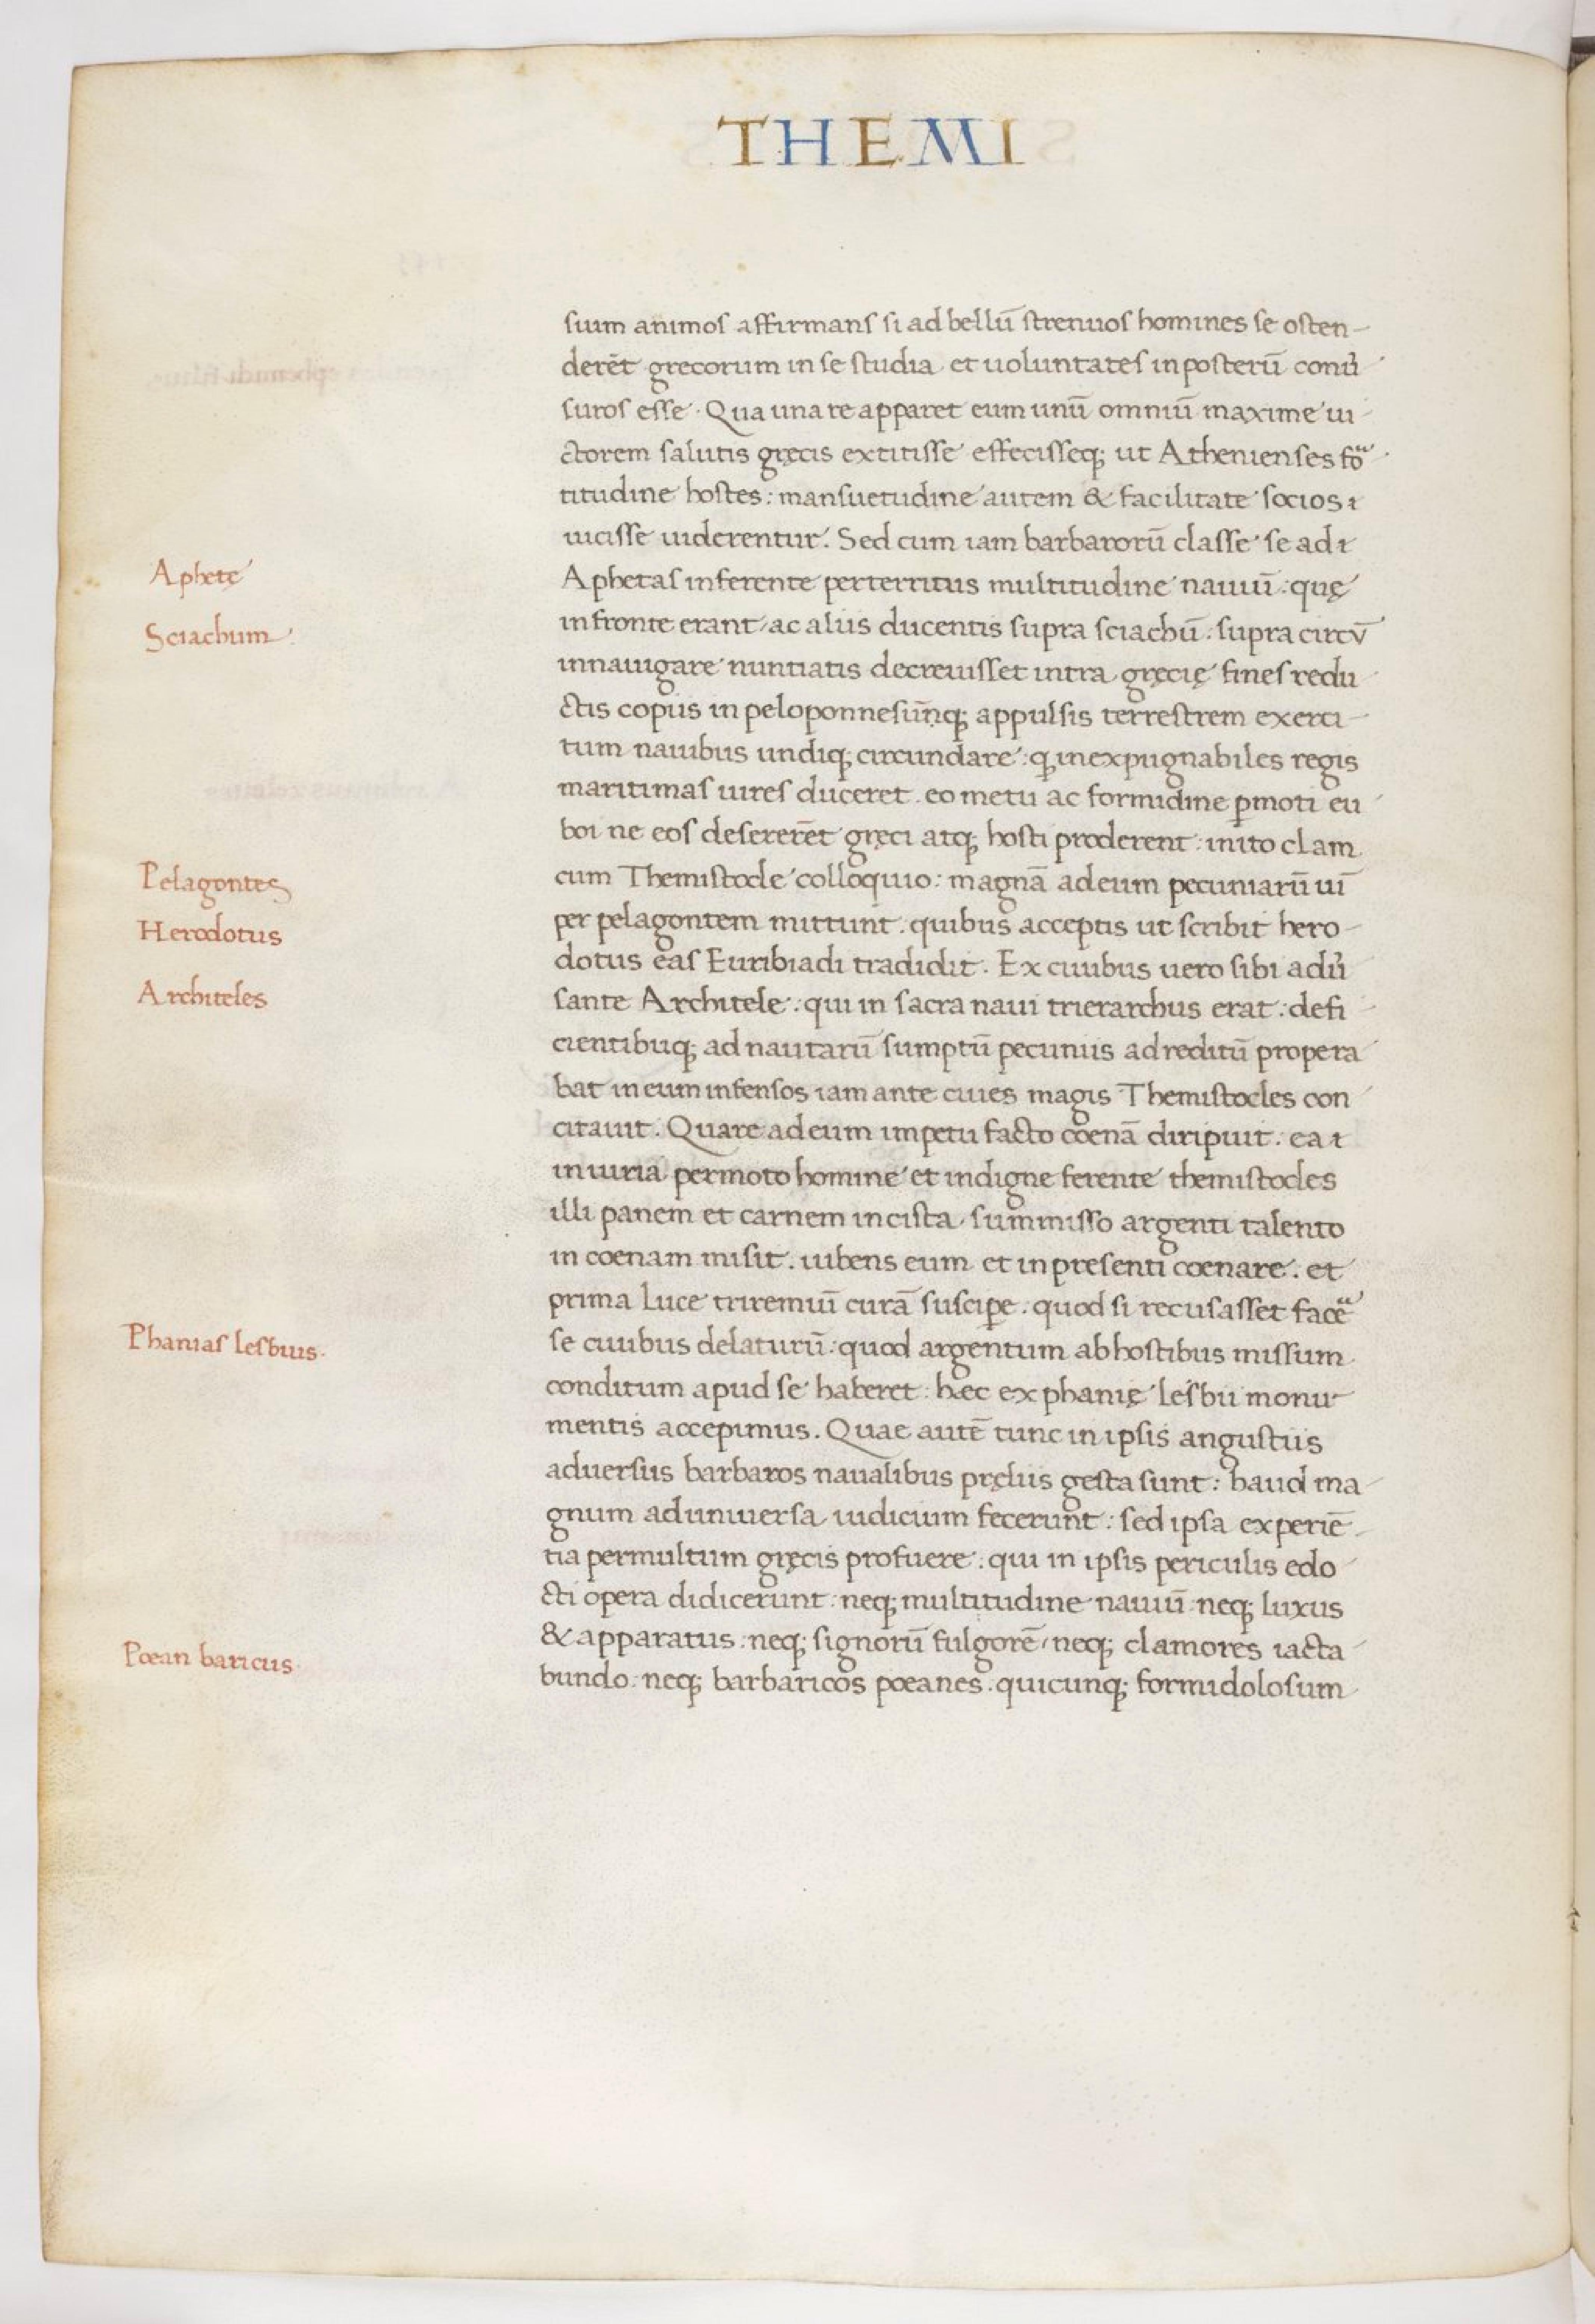 THEMI
sium animos affirmans si ad bellū strenuos homines se osten-
derēt grecorum in se studia et uoluntates in posterū conu̓
suros esse. Qua una re apparet eum unū omniū maxime ui-
ctorem salutis gręcis extitisse effecisseq; ut Athenienses fo
titudine hostes: mansuetudine autem & facilitate socios
uicisse uiderentur. Sed cum iam barbarorū classe se ad
Aphetę
Aphetas inferente perterritus multitudine nauiū: quę
Sciachum.
in fronte erant, ac aliis ducentis supra sciachū: supra circū
innauigare nuntiatis decreuisset intra gręcię fines redu
ctis copiis in peloponnesūnq; appulsis terrestrem exerci-
tum nauibus undiq; circundare: ꝙ inexpugnabiles regis
maritimas uires duceret. eo metu ac formidine ꝑmoti eu
boi ne eos desererēt gręci atq; hosti proderent: inito clam
Pelagontes
cum Themistocle colloquio: magnā ad eum pecuniarū uī
Herodotus
per pelagontem mittunt: quibus acceptis ut scribit hero-
dotus eas Euribiadi tradidit. Ex ciuibus uero sibi adu̓
Architeles
sante Architele: qui in sacra naui trierarchus erat: defi
cientibuq; ad nautarū sumptū pecuniis ad reditū propera
bat in eum infensos iam ante ciues magis Themistocles con
citauit. Quare ad eum impetu facto coenā diripuit. ea
iniuria permoto homine et indigne ferente themistocles
illi panem et carnem in cista, summisso argenti talento
in coenam misit. iubens eum et in presenti coenare. et
prima luce triremiū curā susciꝑe: quod si recusasset face
Phanias lesbius.
se ciuibus delaturū: quod argentum ab hostibus missum
conditum apud se haberet: hæc ex phanię lesbii monu-
mentis accepimus. Quae autē tunc in ipsis angustiis
aduersus barbaros naualibus pręliis gesta sunt: haud ma-
gnum ad uniuersa iudicium fecerunt: sed ipsa experiē-
tia permultum gręcis profuere: qui in ipsis periculis edo
cti opera didicerunt: neq; multitudine nauiū: neq; luxus
& apparatus: neq; signorū fulgorē, neq; clamores iacta-
Pœan baricus.
bundo: neq; barbaricos pœanes. quicunq; formidolosum